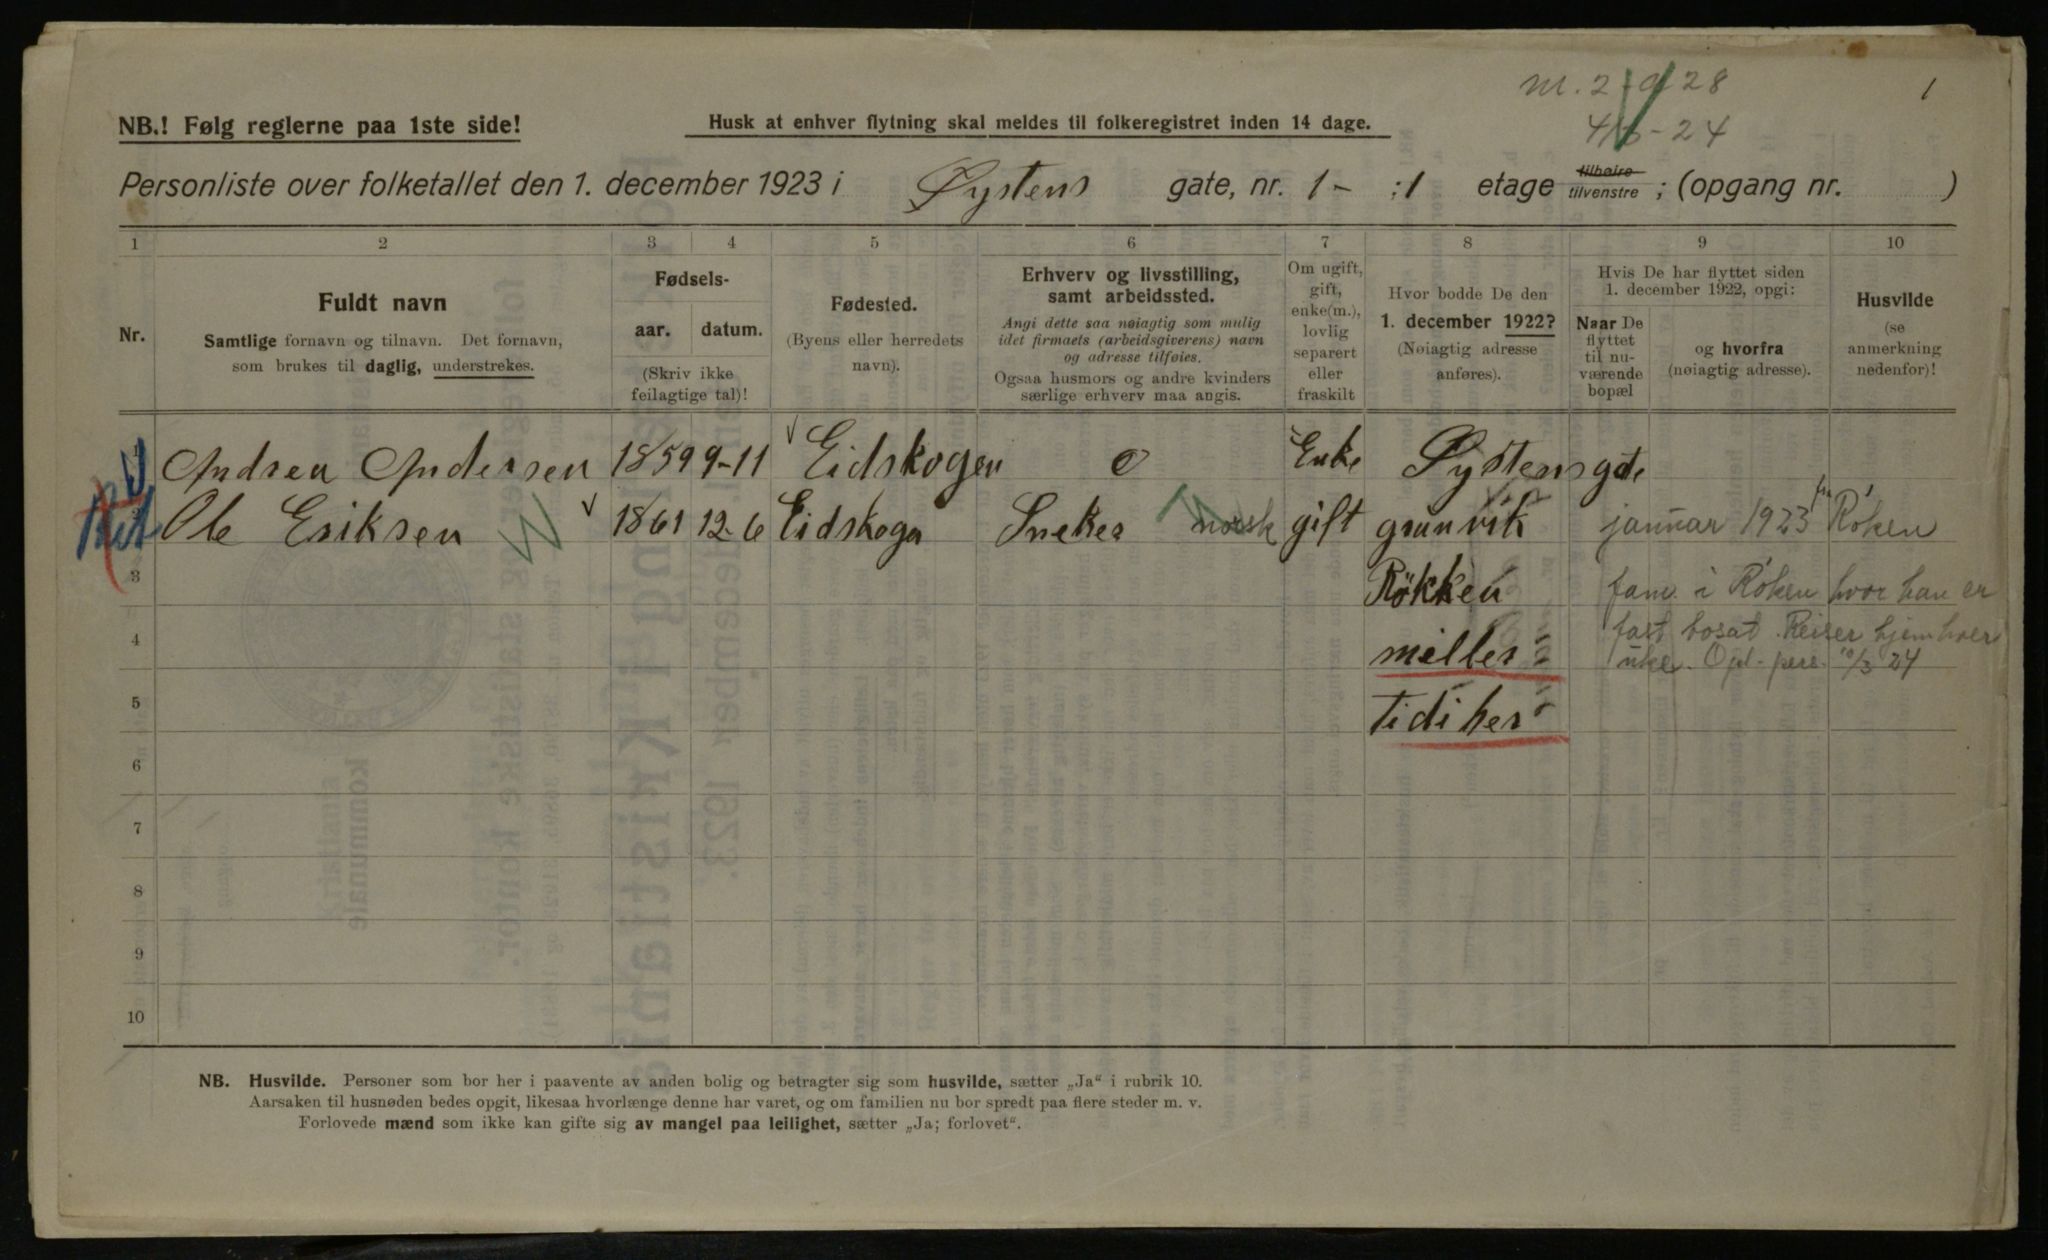 m. 2-9 28
1
4/3-24
NB.! Følg reglerne paa 1ste side!
Husk at enhver flytning skal meldes til folkeregistret inden 14 dage.
Personliste over folketallet den 1. december 1923 i Øystens gate, nr. 1- :1 etage tilhøire tilvenstre ; (opgang nr. )
1 2 3 4 5 6 7 8 9 10
Nr.
Fuldt navn
Samtlige fornavn og tilnavn. Det fornavn,
som brukes til daglig, understrekes.
Fødsels-
aar. datum.
(Skriv ikke
feilagtige tal)!
Fødested.
(Byens eller herredets
navn).
Erhverv og livsstilling,
samt arbeidssted.
Angi dette saa nøiagtig som mulig
idet firmaets (arbeidsgiverens) navn
og adresse tilføies.
Ogsaa husmors og andre kvinders
særlige erhverv maa angis.
Om ugift,
gift,
enke(m.),
lovlig
separert
eller
fraskilt
Hvor bodde De den
1. december 1922?
(Nøiagtig adresse
anføres).
Hvis De har flyttet siden
1. december 1922, opgi:
Naar De
flyttet
til nu-
værende
bopæl
og hvorfra
(nøiagtig adresse).
Husvilde
(se
anmerkning
nedenfor)!
1 Andrea Andersen 1859 9-11 Eidskogen o Enke Øystensgate
2 Ole Eriksen 1861 12-6 Eidskogn Sneker norsk gift granvik januar 1923 fra Røken
3 Røkken fam. i Røken hvor han er
4 milles fast bosat. Reiser hjem hver
uke. Opl. pers. 10/3 24
5 tidiher
6
7
8
9
10
NB. Husvilde. Personer som bor her i paavente av anden bolig og betragter sig som husvilde, sætter „Ja“ i rubrik 10.
Aarsaken til husnøden bedes opgit, likesaa hvorlænge denne har varet, og om familien nu bor spredt paa flere steder m. v.
Forlovede mænd som ikke kan gifte sig av mangel paa leilighet, sætter „Ja; forlovet“.